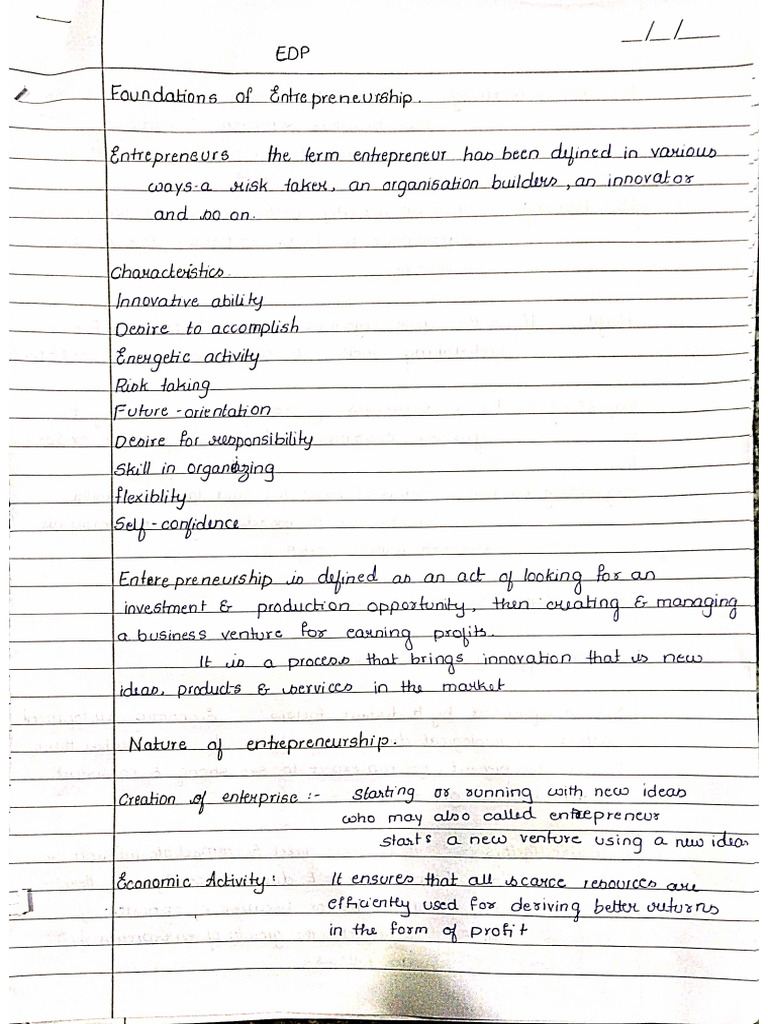 _/_/_
EDP
Foundations of Entrepreneurship.
Entrepreneurs the term entrepreneur has been defined in various
ways-a risk taker, an organisation builders, an innovator
and so on.
Characteristics.
Innovative ability
Desire to accomplish
Energetic activity
Risk taking
Future-orientation
Desire for responsibility
Skill in organizing
flexiblity
Self-confidence
Enterepreneurship is defined as an act of looking for an
investment & production opportunity, then creating & managing
a business venture for earning profits.
It is a process that brings innovation that is new
ideas, products & services in the market
Nature of entrepreneurship.
Creation of enterprise :- Starting or running with new ideas
who may also called entrepreneur
starts a new venture using a new idea
Economic Activity : It ensures that all scarce resources are
efficiently used for deriving better returns
in the form of profit